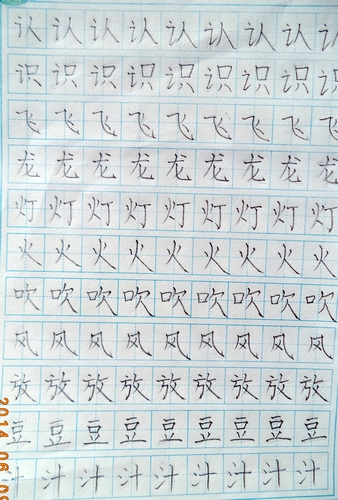 认认认认认认认认认
识识识识识识识识识
飞飞飞飞飞飞飞飞飞
龙龙龙龙龙龙龙龙龙
灯灯灯灯灯灯灯灯灯
火火火火火火火火火
吹吹吹吹吹吹吹吹吹
风风风风风风风风风
放放放放放放放放放
豆豆豆豆豆豆豆豆豆
汁汁汁汁汁汁汁汁汁
2014 06